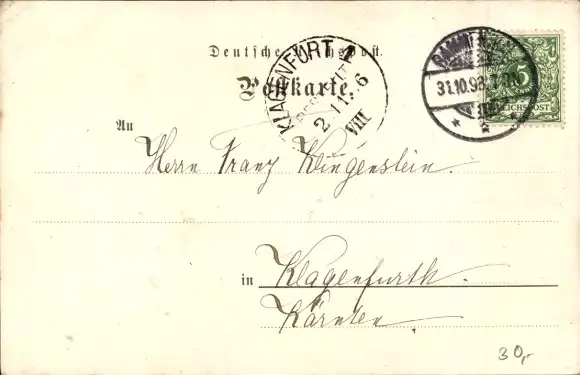 Deutsche Reichspost.
Postkarte.
KLAGENFURT 1
2 11 6
VIII
31.10.9
5
REICHSPOST
An
Herrn Franz Klingenstein.
in Klagenfurth.
Kärnten
30,-